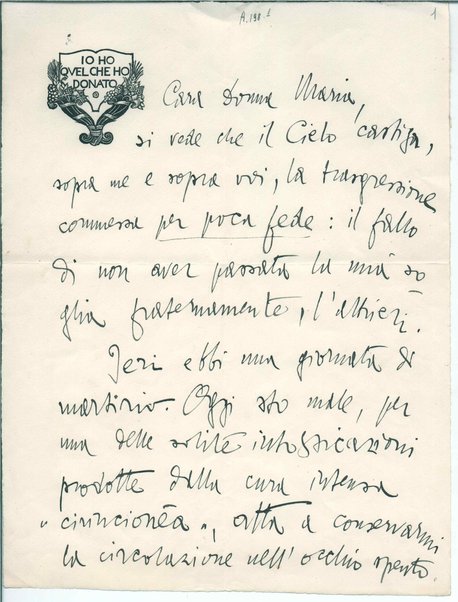 A.198.1
1
IO HO
QVEL CHE HO
DONATO
Cara Donna Maria,
si vede che il Cielo castiga,
sopra me e sopra voi, la trasgressione
commessa per poca fede: il fallo
di non aver passata la mia so
glia fraternamente, l'altrieri.
Ieri ebbi una giornata di
martirio. Oggi sto male, per
una delle solite intossicazioni
prodotte dalla cura intensa
" cinincionèa ", atta a conservarmi
la circolazione nell'occhio spento.